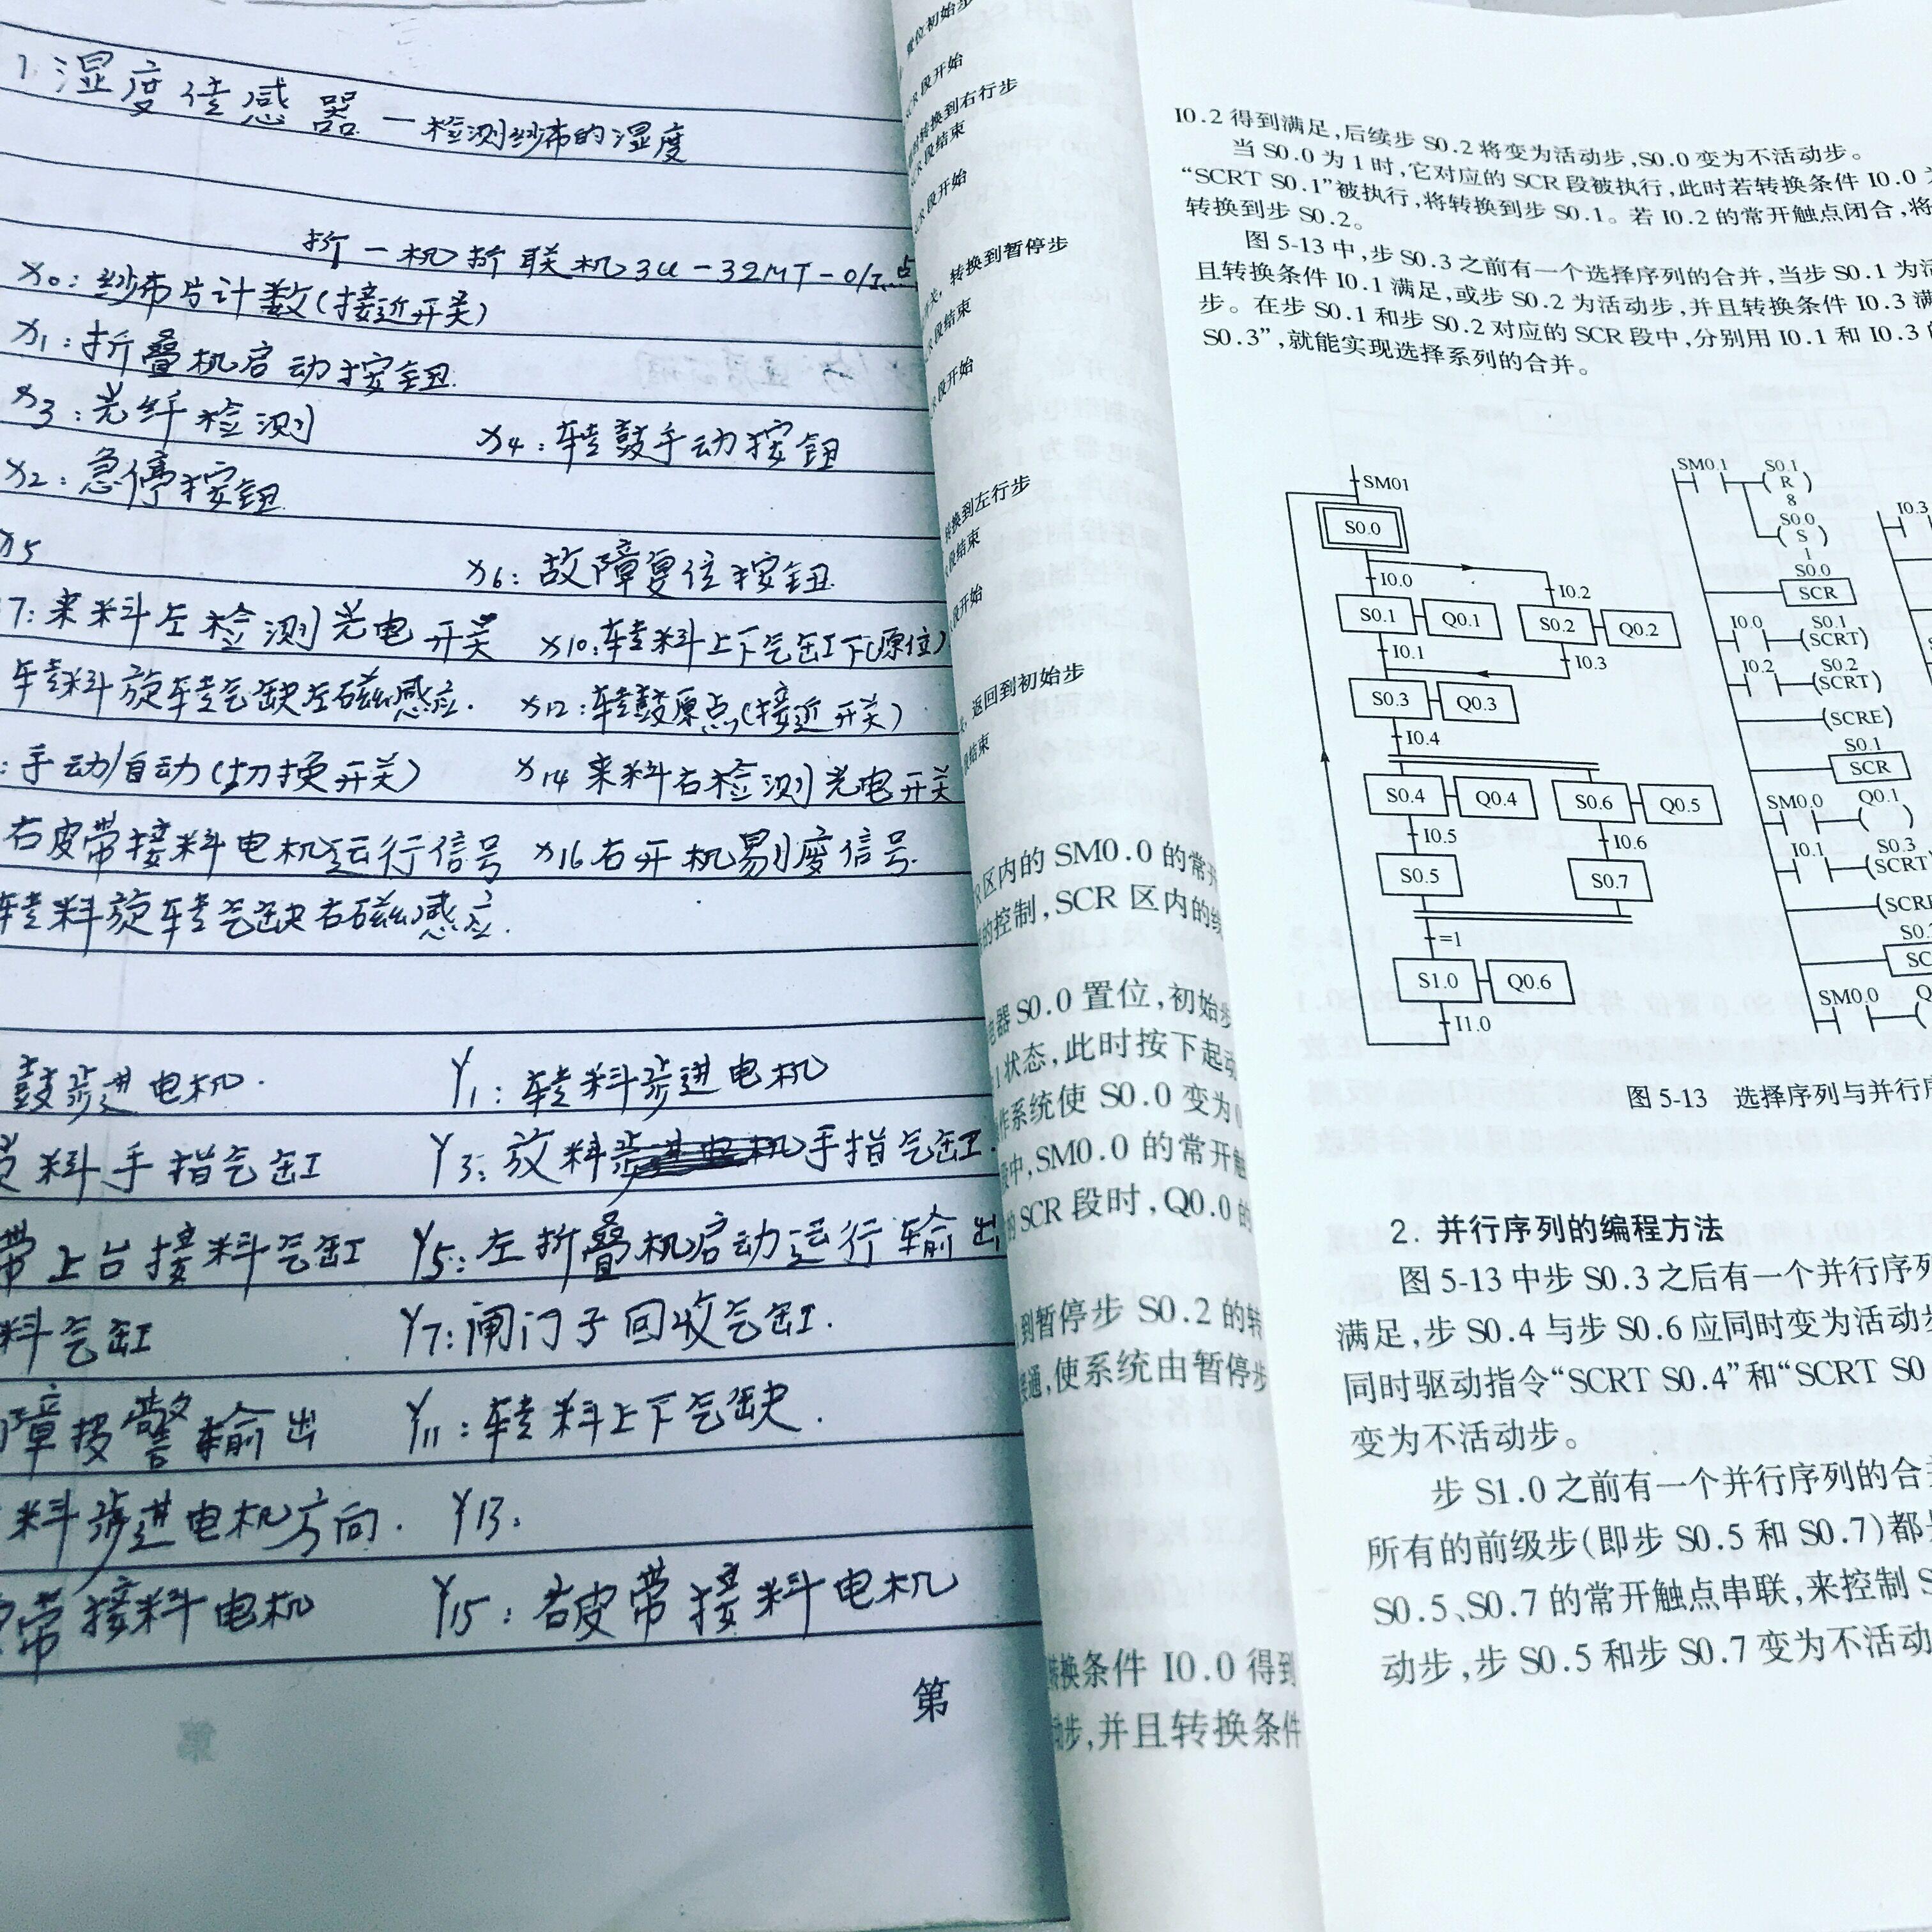 1.湿度传感器—检测纱布的湿度
折一机折联机3U-32MT-0/I点
X0:纱布片计数(接近开关)
X1:折叠机启动按钮.
X3:光纤检测 X4:转鼓手动按钮
X2:急停按钮
X5 X6:故障复位按钮.
7:来料左检测光电开关 X10:转料上下气缸下(原位)
转料旋转气缺左磁感应. X12:转鼓原点(接近开关)
:手动/自动(切换开关) X14来料右检测光电开关
右皮带接料电机运行信号 X16右开机易废信号.
转料旋转气缺右磁感应.
鼓步进电机. Y1:转料步进电机
料手指气缸 Y3:放料手指气缸.
带上台接料气缸 Y5:左折叠机启动运行输出
料气缸 Y7:闸门子回收气缸.
障报警输出 Y11:转料上下气缺.
料步进电机方向. Y13:
带接料电机 Y15:右皮带接料电机
第
置位初始步
SCR段开始
转换到右行步
段结束
段开始
关,转换到暂停步
段结束
段开始
转换到左行步
段结束
段开始
返回到初始步
段结束
区内的 SM0.0 的常开
的控制,SCR 区内的线
电器 S0.0 置位,初始步
状态,此时按下起动
作系统使 S0.0 变为
段中,SM0.0 的常开触
的 SCR 段时,Q0.0 的
到暂停步 S0.2 的转
接通,使系统由暂停步
转换条件 I0.0 得到
动步,并且转换条件
I0.2 得到满足,后续步 S0.2 将变为活动步,S0.0 变为不活动步。
当 S0.0 为 1 时,它对应的 SCR 段被执行,此时若转换条件 I0.0 为
“SCRT S0.1”被执行,将转换到步 S0.1。若 I0.2 的常开触点闭合,将
转换到步 S0.2。
图 5-13 中,步 S0.3 之前有一个选择序列的合并,当步 S0.1 为活
且转换条件 I0.1 满足,或步 S0.2 为活动步,并且转换条件 I0.3 满
步。在步 S0.1 和步 S0.2 对应的 SCR 段中,分别用 I0.1 和 I0.3 的
S0.3”,就能实现选择系列的合并。
SM01
S0.0
I0.0 I0.2
S0.1 Q0.1 S0.2 Q0.2
I0.1 I0.3
S0.3 Q0.3
I0.4
S0.4 Q0.4 S0.6 Q0.5
I0.5 I0.6
S0.5 S0.7
=1
S1.0 Q0.6
I1.0
SM0.1 S0.1
R
8
S0.0
S
1
S0.0
SCR
I0.0 S0.1
(SCRT)
I0.2 S0.2
(SCRT)
(SCRE)
S0.1
SCR
SM0.0 Q0.1
I0.1 S0.3
(SCRT
(SCRE
S0.
SC
SM0.0 Q
I0.3
图 5-13 选择序列与并行序
2. 并行序列的编程方法
图 5-13 中步 S0.3 之后有一个并行序列
满足,步 S0.4 与步 S0.6 应同时变为活动步
同时驱动指令“SCRT S0.4”和“SCRT S0
变为不活动步。
步 S1.0 之前有一个并行序列的合并
所有的前级步(即步 S0.5 和 S0.7)都是
S0.5、S0.7 的常开触点串联,来控制 S
动步,步 S0.5 和步 S0.7 变为不活动